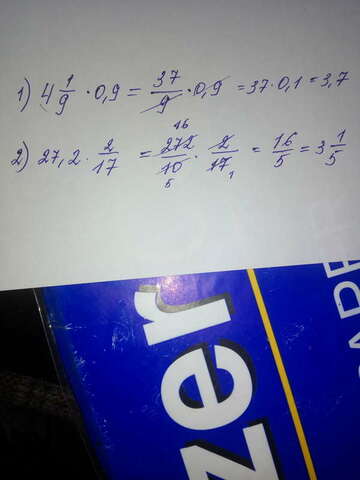 1) 4 1/9 · 0,9 = 37/9 · 0,9 = 37 · 0,1 = 3,7
16
2) 27,2 · 2/17 = 272/10 · 2/17 = 16/5 = 3 1/5
5 1
zer